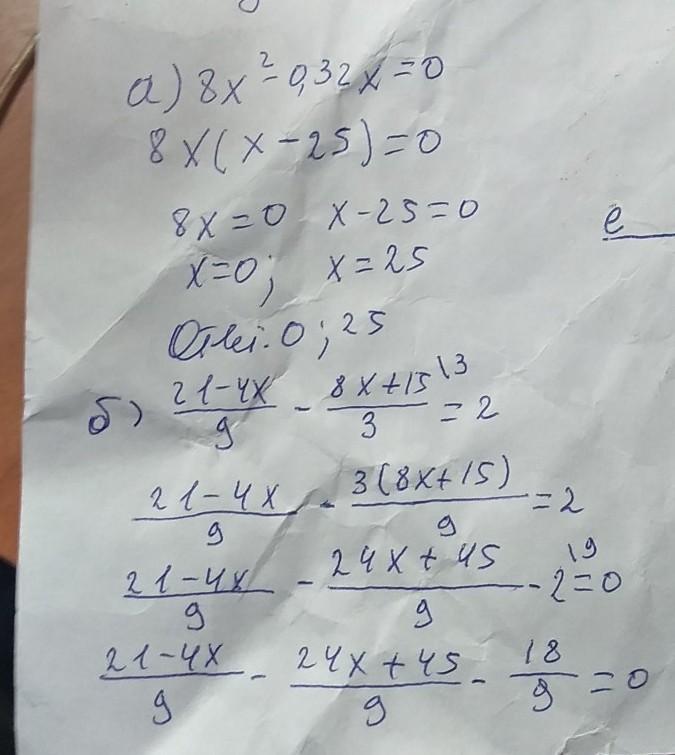 а) 8x² - 0,32x = 0
8x(x - 25) = 0
8x = 0 x - 25 = 0
x = 0; x = 25
e
Ответ: 0; 25
б) (21 - 4x)/9 - (8x + 15)/3 \3 = 2
(21 - 4x)/9 - 3(8x + 15)/9 = 2
(21 - 4x)/9 - (24x + 45)/9 - 2 \9 = 0
(21 - 4x)/9 - (24x + 45)/9 - 18/9 = 0